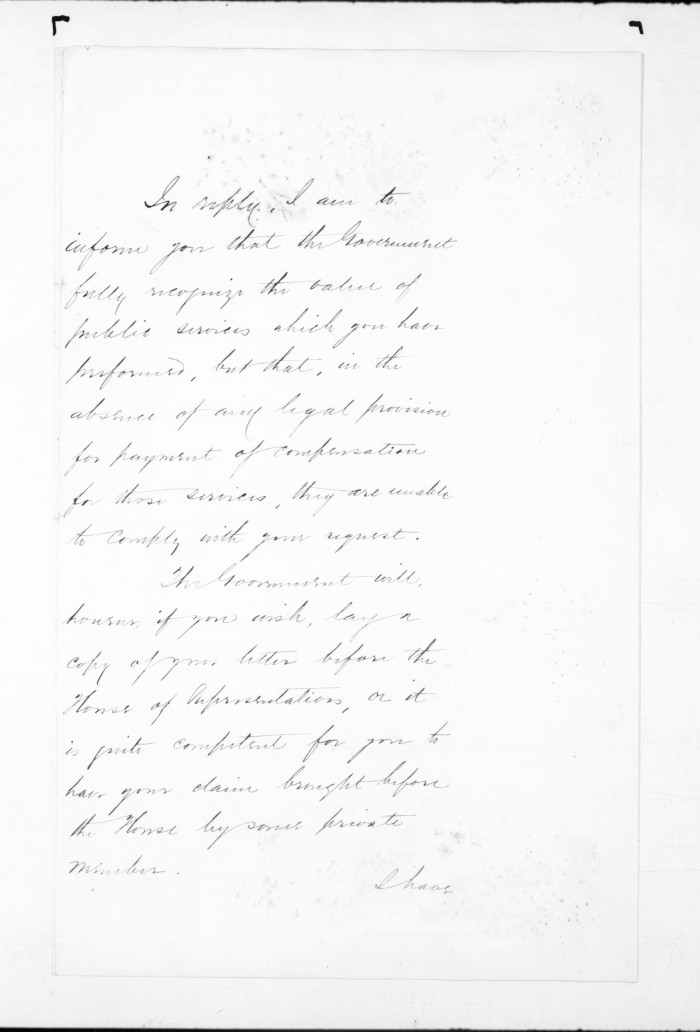 In reply, I am to
inform you that the Government
fully recognize the value of
public services which you have
performed, but that, in the
absence of any legal provision
for payment of compensation
for those services, they are unable
to comply with your request.
The Government will,
however, if you wish, lay a
copy of your letter before the
House of Representatives, or it
is quite competent for you to
have your claim brought before
the House by some private
member.
I have